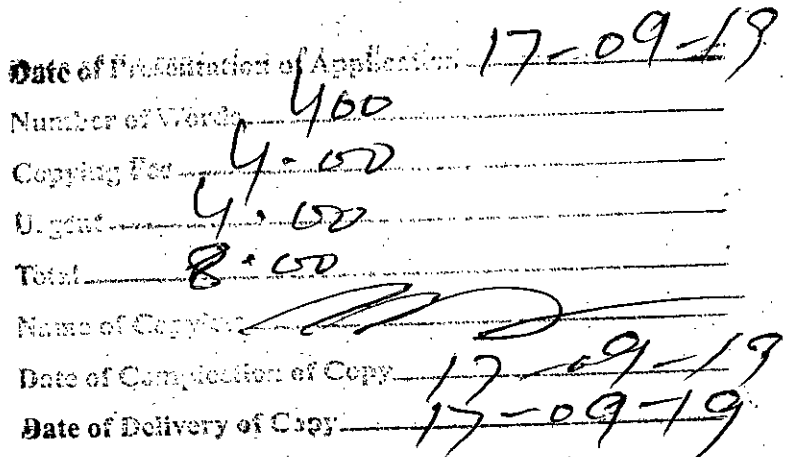 Date of Presentation of Application 17-09-19
Number of Words 400
Copying Fee 4.00
Urgent 4.00
Total 8.00
Name of Copyist
Date of Completion of Copy 17-09-19
Date of Delivery of Copy 17-09-19